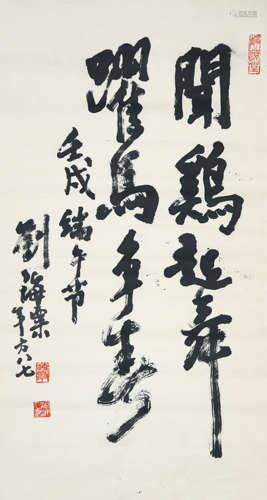 聞鷄起舞
躍馬争春
壬戌端午节
劉海粟年方八七